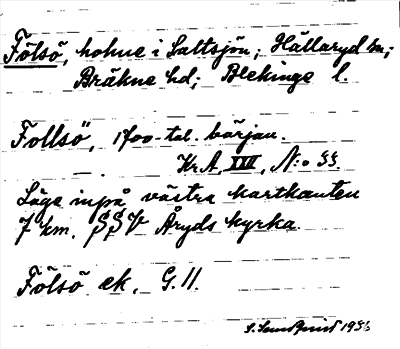 Fölsö, holme i Saltsjön; Hällaryd sn;
Bräkne hd; Blekinge l.
Follsö, 1700-tal. början.
Kr. A, XXII, N:o 33.
Läge inpå västra kartkanten
7 km. SSV Åryds kyrka.
Fölsö ek. G. 11.